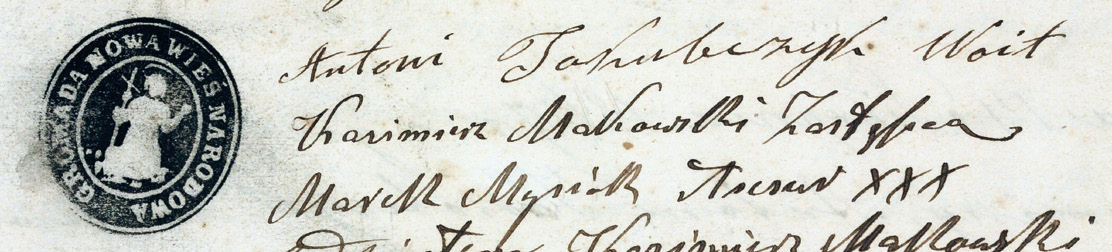 GROMADA NOWA WIEŚ NARODOWA
Antoni Jakubczyk Woit
Kazimierz Makowski Zastępca
Marek Mysiak Asesur XXX
Kazimierz Makowski